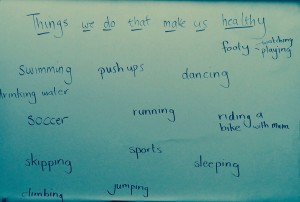 Things we do that make us healthy
footy - watching
- playing
swimming
push ups
dancing
drinking water
soccer
running
riding a
bike with mum
sports
skipping
sleeping
climbing
jumping